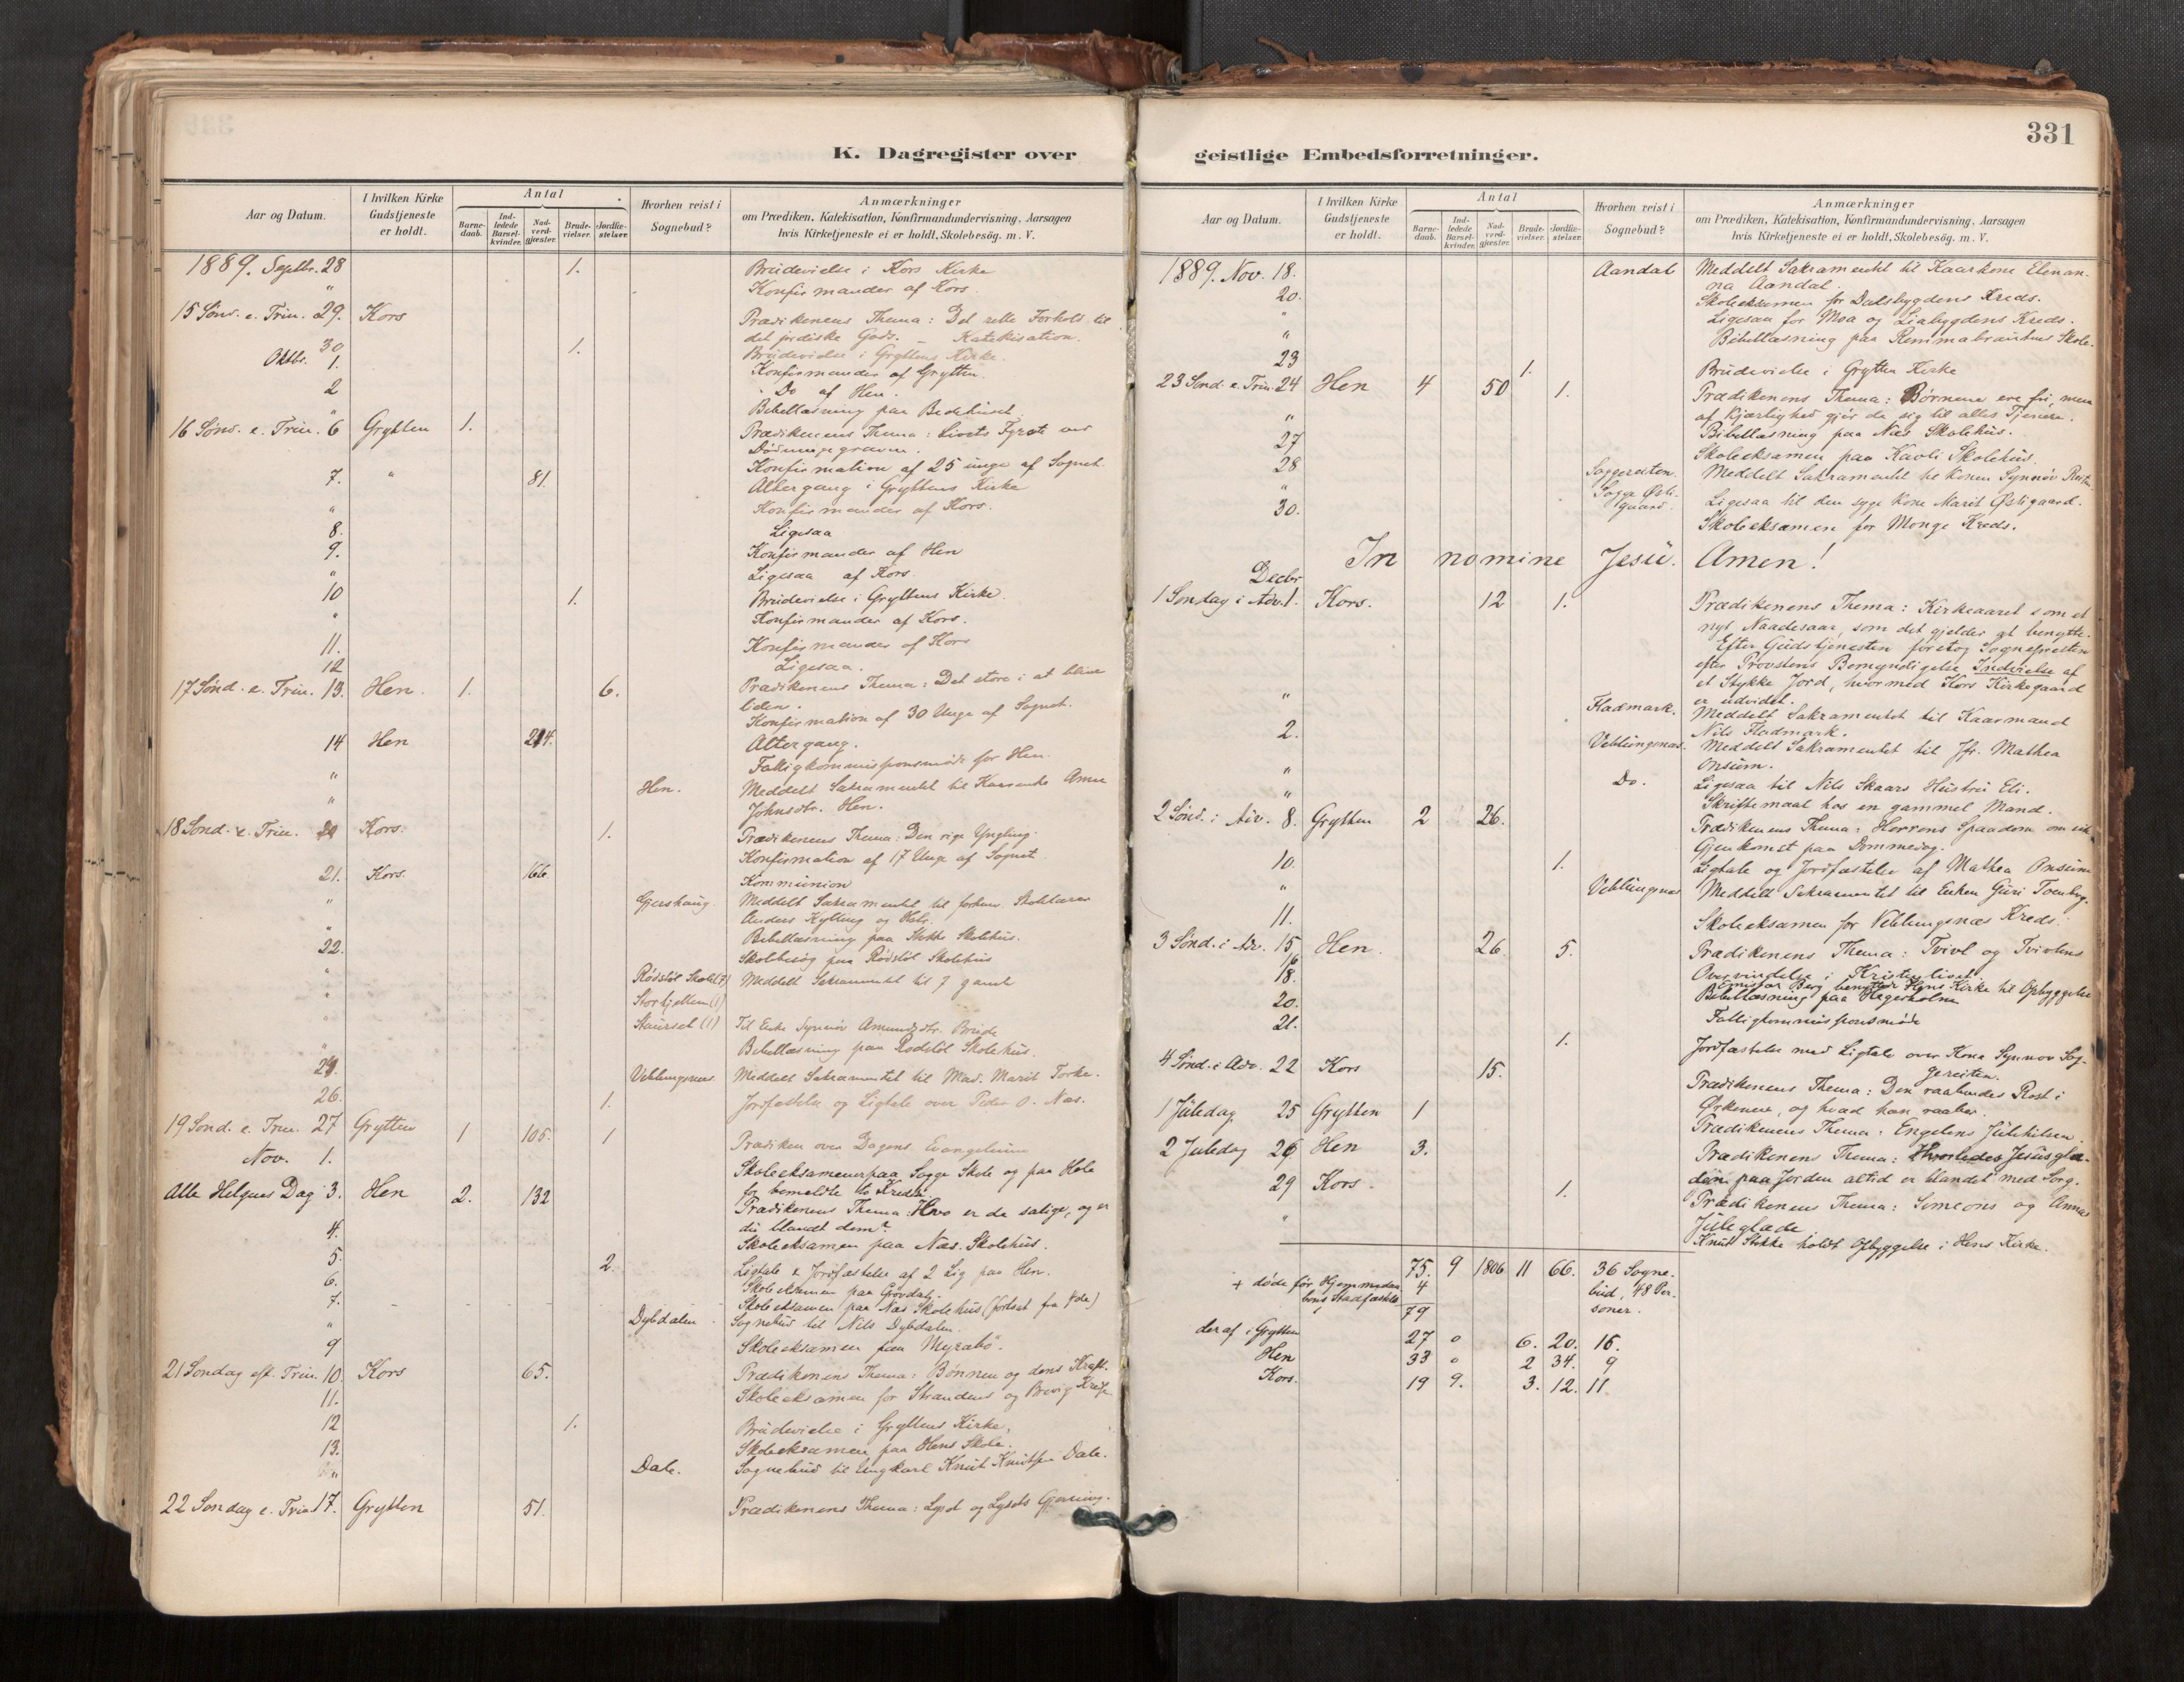 K. Dagregister over
Aar og Datum.
I hvilken Kirke Gudstjeneste er holdt.
Antal
Barne-daab.
Ind-ledede Barsel-kvinder.
Nad-verd-gjæster.
Brude-vielser.
Jordfæ-stelser.
Hvorhen reist i Sognebud?
Anmærkninger
om Prædiken, Katekisation, Konfirmandundervisning, Aarsagen
hvis Kirketjeneste ei er holdt, Skolebesög. m. V.
1889. Septbr. 28 1. Brudevielse i Kors Kirke
" Konfirmander af Kors.
15 Sönd. e. Trin. 29. Kors Prædikenens Thema: Det rette Forhold til
det jordiske Gods. – Katekisation.
30 1. Brudevielse i Gryttens Kirke.
Oktbr. 1. Konfirmander af Grytten.
2 Do af Hen.
" Bibellæsning paa Bedehuset
16 Sönd. e. Trin. 6 Grytten 1. Prædikenens Thema: Livets Fyrste ved
Konfirmation af 25 unge af Sognet.
7. " 81. Altergang i Gryttens Kirke
" Konfirmander af Kors.
8. Ligesaa
9. Konfirmander af Hen
" Ligesaa af Kors.
10 1. Brudevielse i Gryttens Kirke.
" Konfirmander af Kors.
11. Konfirmander af Kors
12 Ligesaa.
17 Sönd. e. Trin. 13. Hen. 1. 6. Prædikenens Thema: Det store i at blive
liden.
Konfirmation af 30 Unge af Sognet.
14 Hen 214. Altergang.
" Fattigkommissionsmöde for Hen.
" Hen. Meddelt Sakramentet til Anne
Johnsdtr. Hen.
18 Sönd. e. Trin. 20 Kors. 1. Prædikenens Thema: Den rige Yngling.
Konfirmation af 17 Unge af Sognet.
21. Kors. 166. Kommunion
" Gjershaug. Meddelt Sakramentet til forhenv. Skolelærer
Anders Kylling og Hstr.
" Bibellæsning paa Stokke Skolehus.
22. Skolebesög paa Rödstöl Skolehus
" Rödstöl Skole (7) Meddelt Sakramentet til 7 gamle
" Storhjellem (1)
" Staurset (1) Til Enke Synnöv Amundsdtr. Brude
" Bibellæsning paa Rödstöl Skolehus.
24. Veblungsnæs Meddelt Sakramentet til Mad. Marit Torke.
26. 1. Jordfæstelse og Ligtale over Peder O. Næs.
19 Sönd. e. Trin. 27 Grytten 1 105. 1 Prædiken over Dagens Evangelium
Nov. 1. Skoleeksamener paa Sogge Skole og paa Hole
for bemeldte to Kredse.
Alle Helgens Dag 3. Hen 2. 132 Prædikenens Thema: Hvo er de salige, og er
du blandt dem?
4. Skoleeksamen paa Næs. Skolehus.
5. 2. Ligtale & Jordfæstelse af 2 Lig paa Hen.
6. Skoleeksamen paa Grövdal.
7. Skoleeksamen paa Næs Skolehus (fortsat fra 4de)
" Dybdalen Sognebud til Nils Dybdalen.
9 Skoleeksamen paa Myrabö.
21 Söndag eft. Trin. 10. Kors 65. Prædikenens Thema: Bönnen og dens Kraft.
11. Skoleeksamen for Strandens og Brevig Kredse
12 1. Brudevielse i Gryttens Kirke.
13. Skoleeksamen paa Hens Skole.
" Dale. Sognebud til Ungkarl Knut Knutsen Dale.
22 Söndag e. Trin. 17. Grytten 51. Prædikenens Thema: Lyset og Lysets Gjerning.
331
geistlige Embedsforretninger.
Aar og Datum.
I hvilken Kirke Gudstjeneste er holdt.
Antal
Barne-daab.
Ind-ledede Barsel-kvinder.
Nad-verd-gjæster.
Brude-vielser.
Jordfæ-stelser.
Hvorhen reist i Sognebud?
Anmærkninger
om Prædiken, Katekisation, Konfirmandundervisning, Aarsagen
hvis Kirketjeneste ei er holdt, Skolebesög. m. V.
1889. Nov. 18. Aandal Meddelt Sakramentet til Kaarkone Elenan-
na Aandal.
20. Skoleeksamen for Dalsbygdens Kreds.
" Ligesaa for Moa og Liabygdens Kreds.
" Bibellæsning paa Remmabrautens Skole.
23 1. Brudevielse i Grytten Kirke
23 Sönd. e. Trin. 24 Hen 4 50 1. Prædikenens Thema: Börnene ere fri, men
af Kjærlighed gjör de sig til alles Tjenere.
" Bibellæsning paa Næs Skolehus.
27 Skoleeksamen paa Kavli Skolehus
28 Soggereiten. Meddelt Sakramentet til Konen Synnöv Reiten
" Sogge Östi-gaard. Ligesaa til den syge Kone Marit Östigaard.
30. Skoleeksamen for Monge Kreds.
In nomine Jesu. Amen!
Decbr
1 Söndag i Adv. 1. Kors. 12 1. Prædikenens Thema: Kirkeaaret som et
nyt Naadesaar, som det gjelder at benytte.
Efter Gudstjenesten foretog Sognepresten
efter Provstens Bemyndigelse Indvielse af
et Stykke Jord, hvormed Kors Kirkegaard
er udvidet.
" Fladmark. Meddelt Sakramentet til Kaarmand
Nils Fladmark.
2. Veblungsnæs. Meddelt Sakramentet til Jfr. Mathea
Onsum.
" Do. Ligesaa til Nils Skaars Hustru Eli.
" Skriftemaal hos en gammel Mand.
2 Sönd. i Adv. 8. Grytten 2 26. Prædikenens Thema: Herrens Spaadom om sin
Gjenkomst paa Dommedag.
10. 1. Ligtale og Jordfæstelse af Mathea Onsum
" Veblungsnæs Meddelt Sakramentet til Enken Guri Toenberg.
11. Skoleeksamen for Veblungsnæs Kreds.
3 Sönd. i Adv. 15 Hen. 26. 5. Prædikenens Thema: Tvivl og Tvivlens
Overvindelse i Kristenlivet.
16 Emissær Berg benyttede Hens Kirke til Opbyggelse
18. Bibellæsning paa Hagesholmen
20. Fattigkommissionsmöde
21. 1. Jordfæstelse med Ligtale over Kone Synnöv Sog-
gereiten.
4 Sönd. i Adv. 22 Kors 15. Prædikenens Thema: Den raabendes Röst i
Örkenen, og hvad han raaber.
1 Juledag 25 Grytten 1 Prædikenens Thema: Engelens Julehilsen.
2 Juledag 26 Hen 3. Prædikenens Thema: Hvorledes Jesusglæ-
den paa Jorden altid er blandet med Sorg.
29 Kors. 1. Prædikenens Thema: Simeons og Annas
Juleglæde
" Knut Stokke holdt Opbyggelse i Hens Kirke.
75. 9 1806 11 66. 36 Sogne-
+ döde för Hjemmedaa 4 bud, 48 Per-
bens Stadfæstelse 79 soner.
deraf i Grytten 27 0 6. 20. 16.
Hen 33 0 2 34. 9
Kors. 19 9. 3. 12. 11.